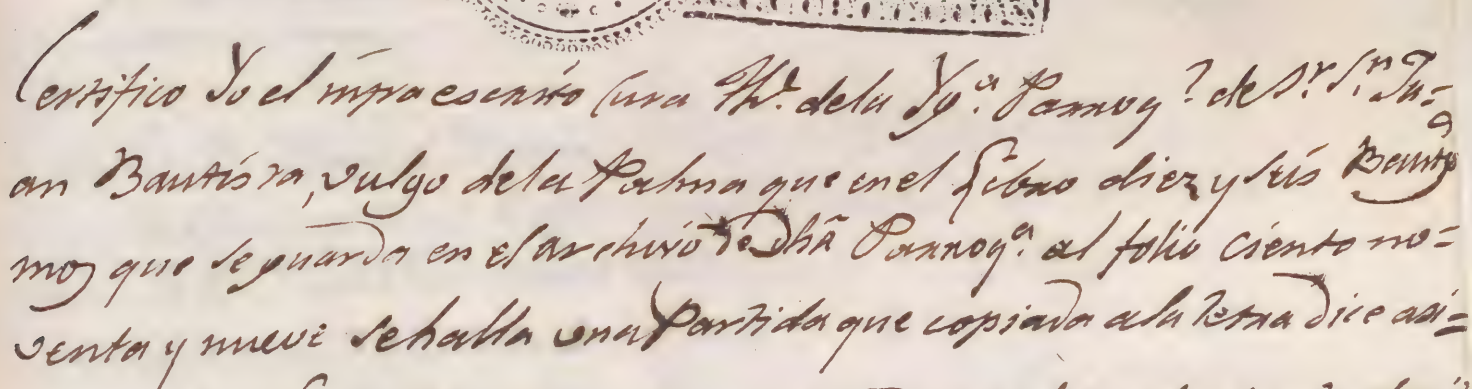 Certifico Yo el infraescrito Cura Th.e dela Yg.a Parroq.l de S.r S.n Ju=
an Bautista, vulgo dela Palma que en el Libro diez y seis Bautis
mos que se guarda en el archivo de dha Parroq.a al folio ciento no=
venta y nueve se halla una Partida que copiada ala letra dice asi=